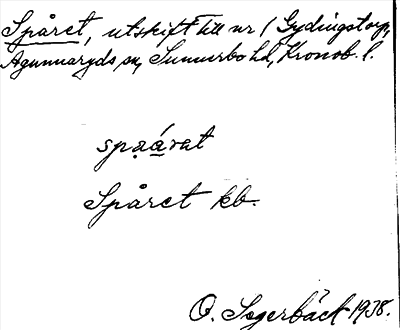 Spåret, utskift till nr 1 Gydingstorp,
Agunnaryds sn, Sunnerbo hd, Kronob. l.
spa̤á̱rat
Spåret kb.
O. Segerbäck 1938.